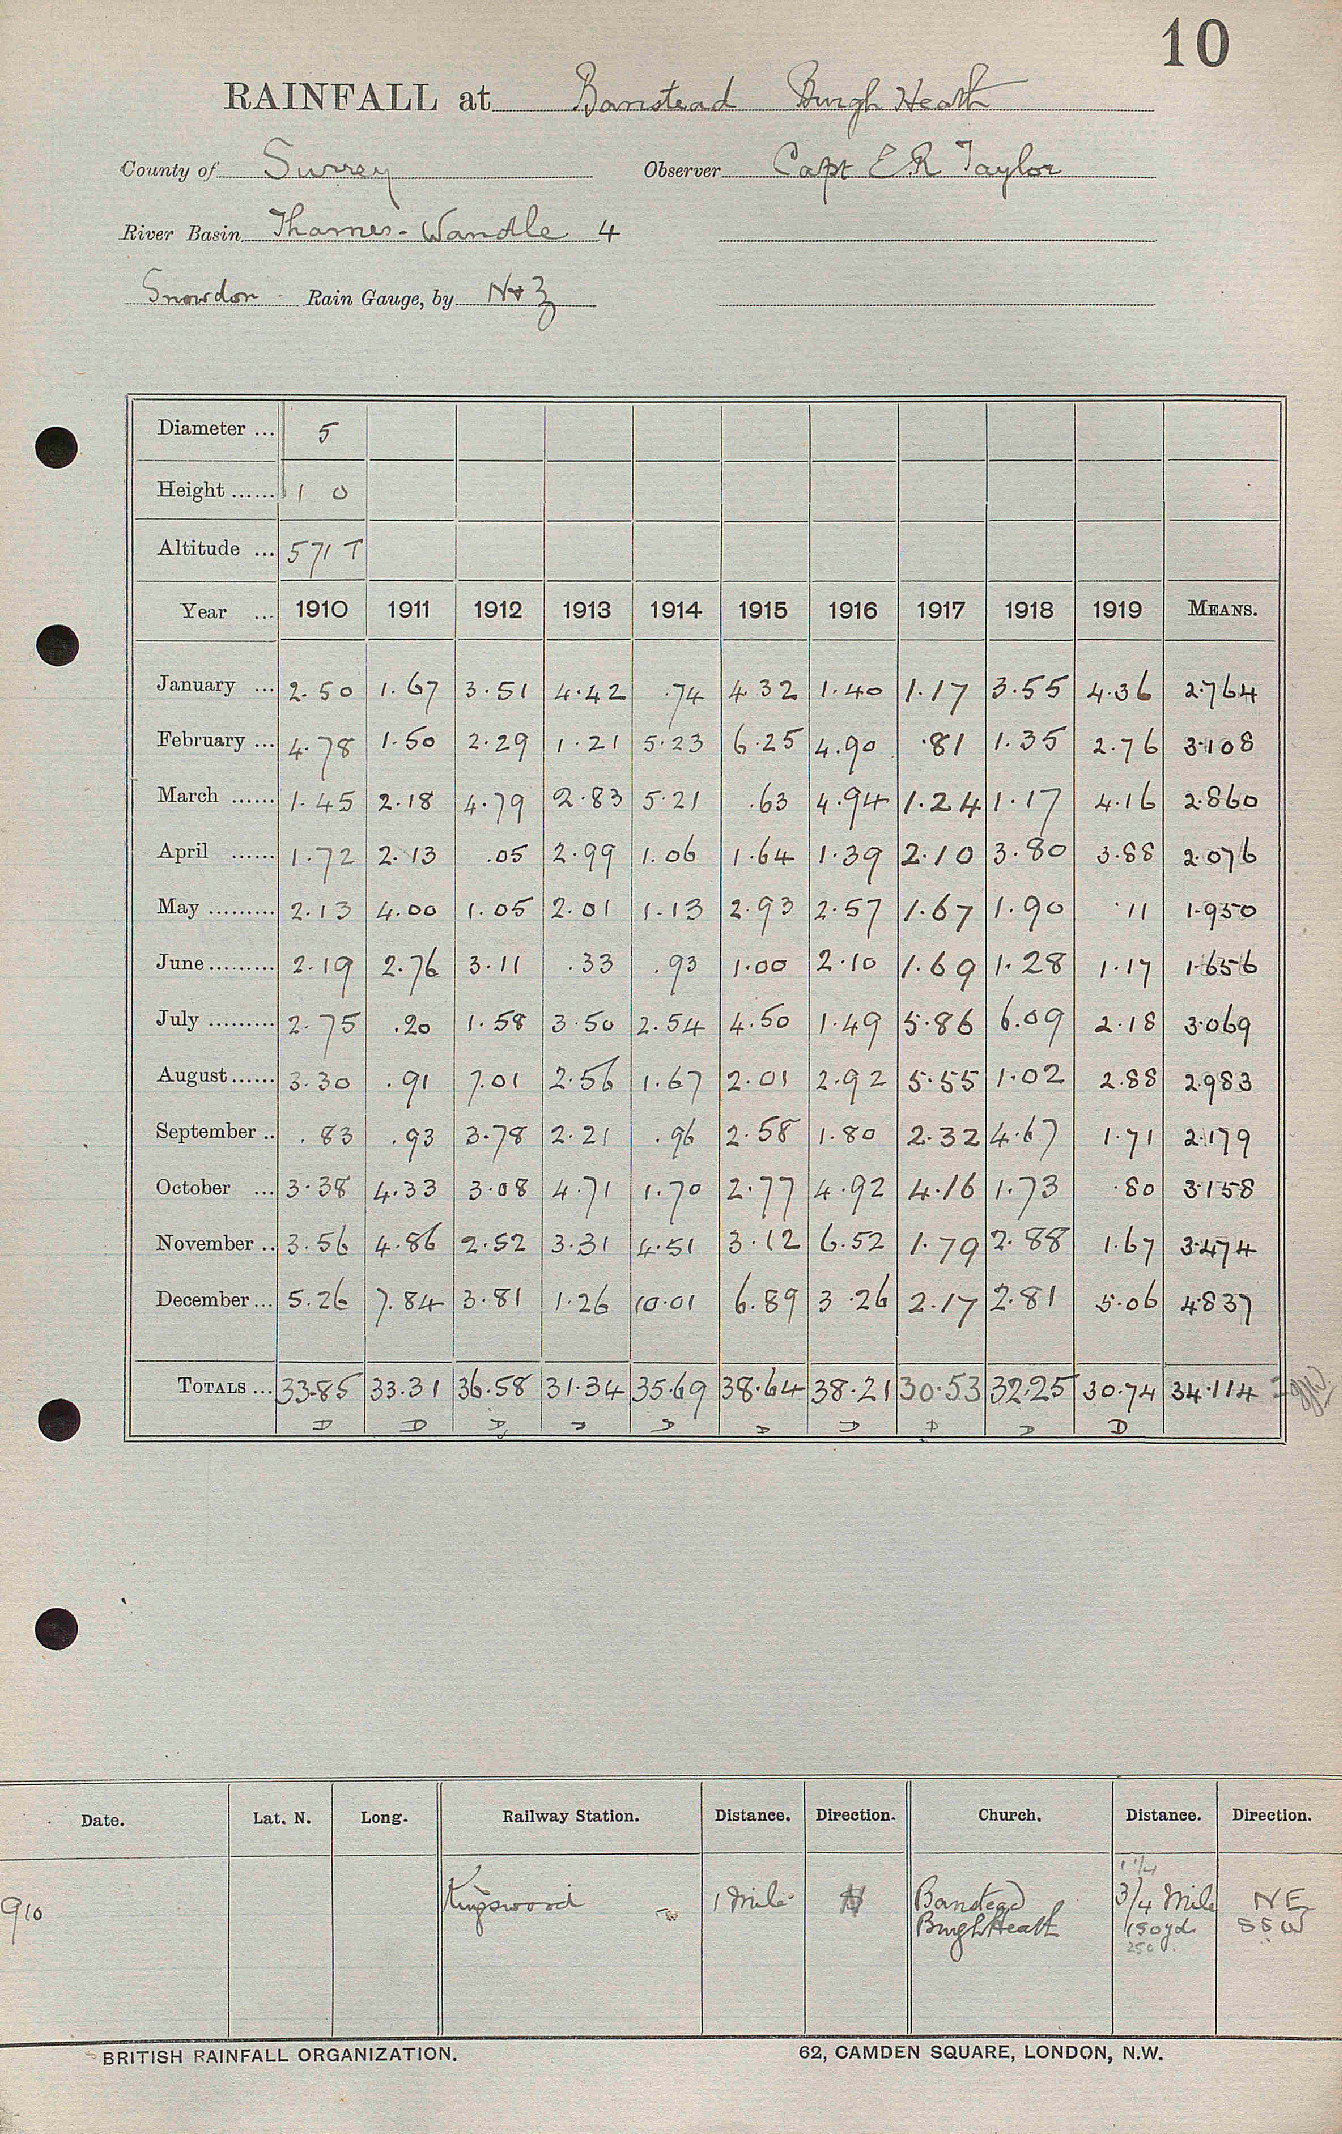 10
RAINFALL at Banstead Burgh Heath
County of Surrey Observer Capt E.R Taylor
River Basin Thames - Wandle 4
Snowdon Rain Gauge, by N+Z
Diameter ... 5
Height ...... 1 0
Altitude ... 571 T
Year ... 1910 1911 1912 1913 1914 1915 1916 1917 1918 1919 MEANS.
January ... 2.50 1.67 3.51 4.42 .74 4.32 1.40 1.17 3.55 4.36 2.764
February ... 4.78 1.50 2.29 1.21 5.23 6.25 4.90 .81 1.35 2.76 3.108
March ...... 1.45 2.18 4.79 2.83 5.21 .63 4.94 1.24 1.17 4.16 2.860
April ...... 1.72 2.13 .05 2.99 1.06 1.64 1.39 2.10 3.80 3.88 2.076
May ......... 2.13 4.00 1.05 2.01 1.13 2.93 2.57 1.67 1.90 .11 1.950
June ......... 2.19 2.76 3.11 .33 .93 1.00 2.10 1.69 1.28 1.17 1.656
July ......... 2.75 .20 1.58 3.50 2.54 4.50 1.49 5.86 6.09 2.18 3.069
August ...... 3.30 .91 7.01 2.56 1.67 2.01 2.92 5.55 1.02 2.88 2.983
September .. .83 .93 3.78 2.21 .96 2.58 1.80 2.32 4.67 1.71 2.179
October ... 3.38 4.33 3.08 4.71 1.70 2.77 4.92 4.16 1.73 .80 3.158
November .. 3.56 4.86 2.52 3.31 4.51 3.12 6.52 1.79 2.88 1.67 3.474
December ... 5.26 7.84 3.81 1.26 10.01 6.89 3.26 2.17 2.81 5.06 4.837
TOTALS ... 33.85 33.31 36.58 31.34 35.69 38.64 38.21 30.53 32.25 30.74 34.114
D D D D D D D D D D
Date. Lat. N. Long. Railway Station. Distance. Direction. Church. Distance. Direction.
1 1/4
910 Kingswood 1 Mile N Banstead 3/4 Mile NE
Burgh Heath 150 yds SSW
250
BRITISH RAINFALL ORGANIZATION. 62, CAMDEN SQUARE, LONDON, N.W.